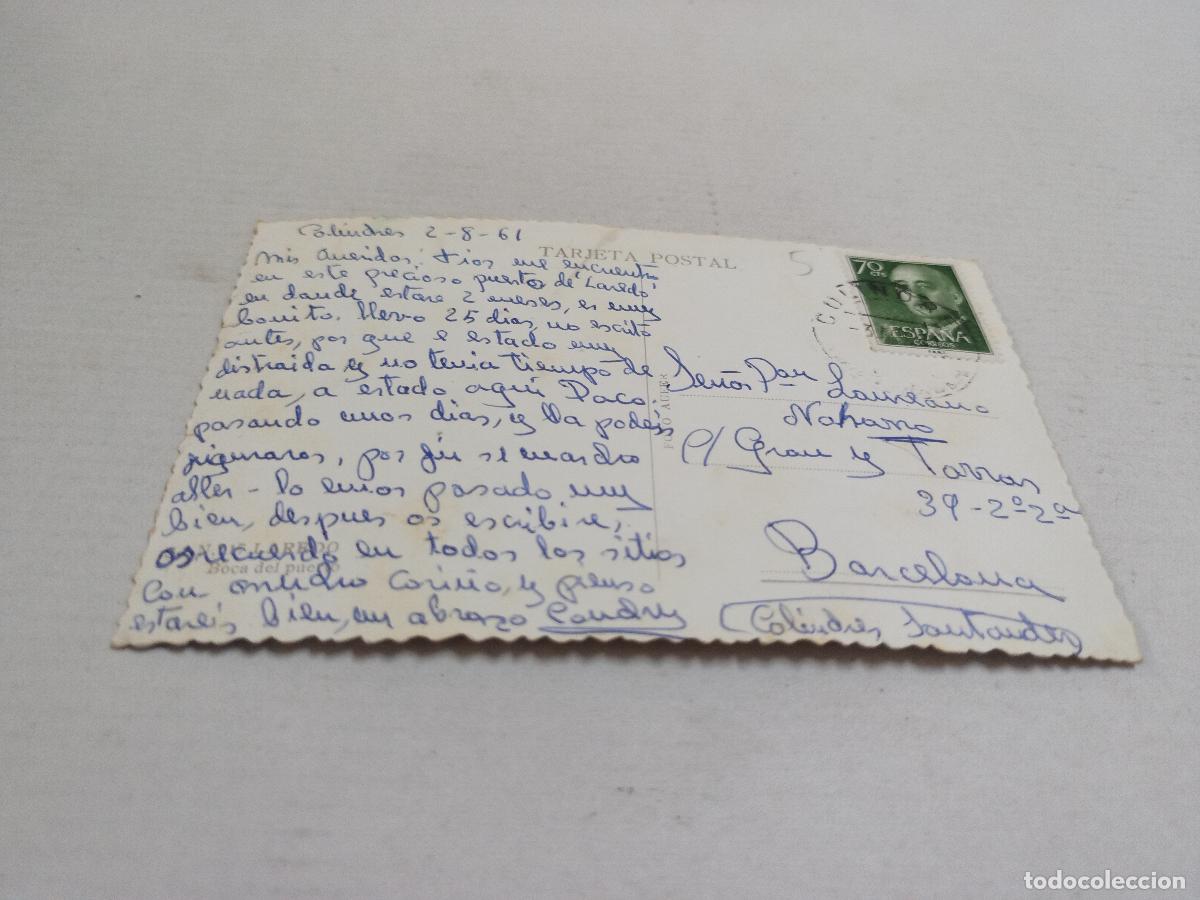 Colindres 2-8-61
TARJETA POSTAL
mis queridos: tios me encuentro
en este precioso puertos de Laredo
en dande estare 2 meses, es muy
bonito. Llevo 25 dias, no escrito
antes, por que e estado muy
distraida y no tenia tiempo de
nada, a estado aqui Paco
pasando unos dias, y Ya podeis
figuraros, por fin se mardro
alller - lo emos pasado muy
bien, despues os escribire,
os recuerdo en todos los sitios
LAREDO
Boca del puerto
Con mucho cariño, y pienso
estareis bien, un abrazo
5
70 CTS
ESPAÑA
CORREOS
FOTO
Señor Don Laureano
Naharro
C/ Grau y Torras
39-2º2ª
Barcelona
(Colindres Santander)
todocoleccion